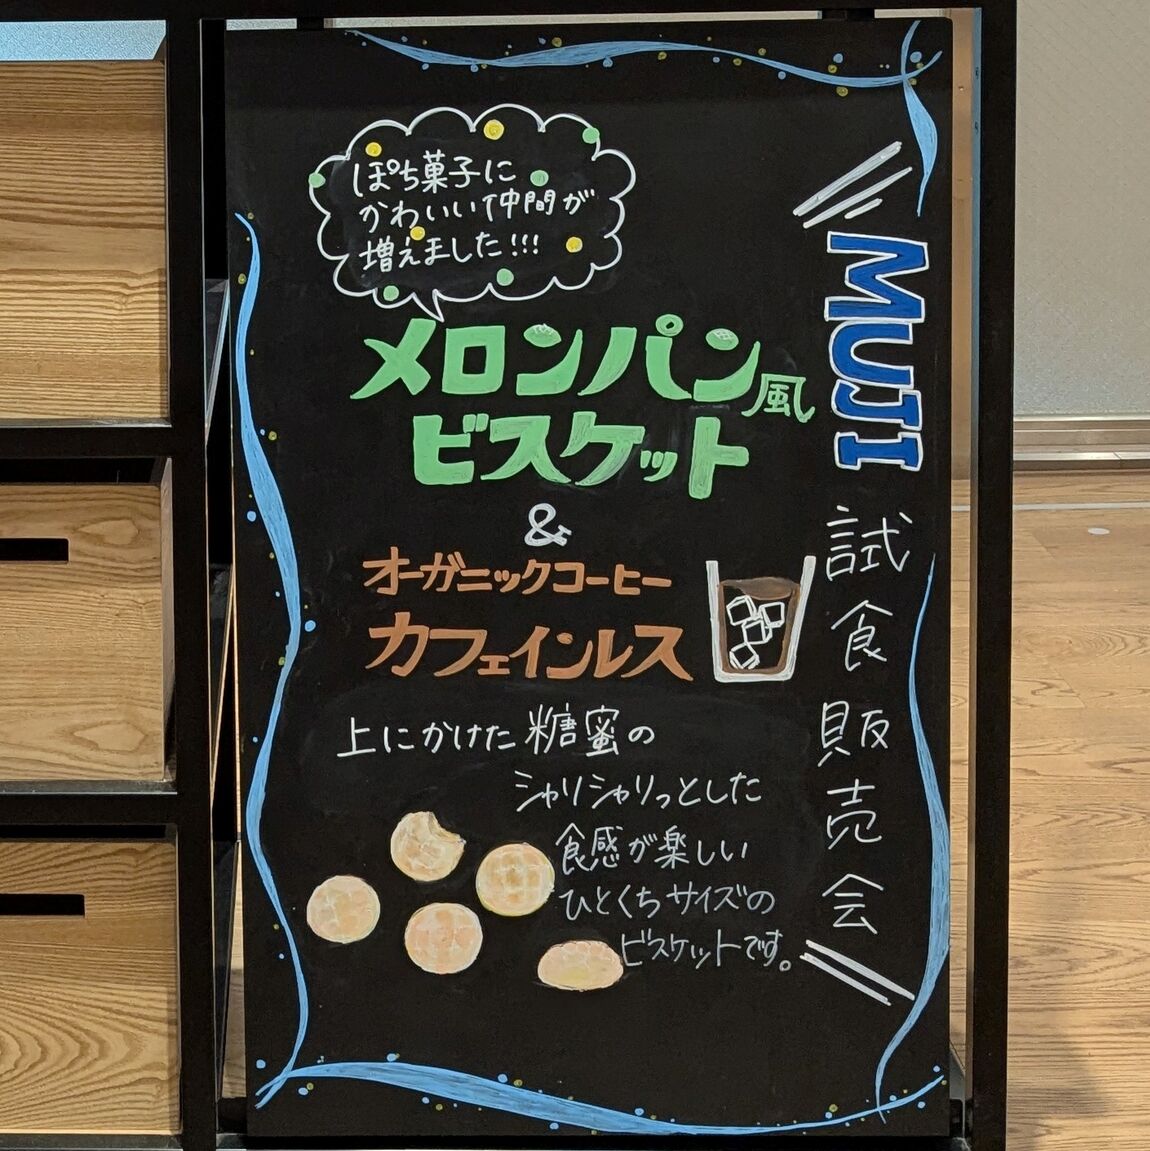 MUJI試食販売会
ぽち菓子に
かわいい仲間が
増えました!!!
メロンパン風
ビスケット
&
オーガニックコーヒー
カフェインレス
上にかけた糖蜜の
シャリシャリっとした
食感が楽しい
ひとくちサイズの
ビスケットです。